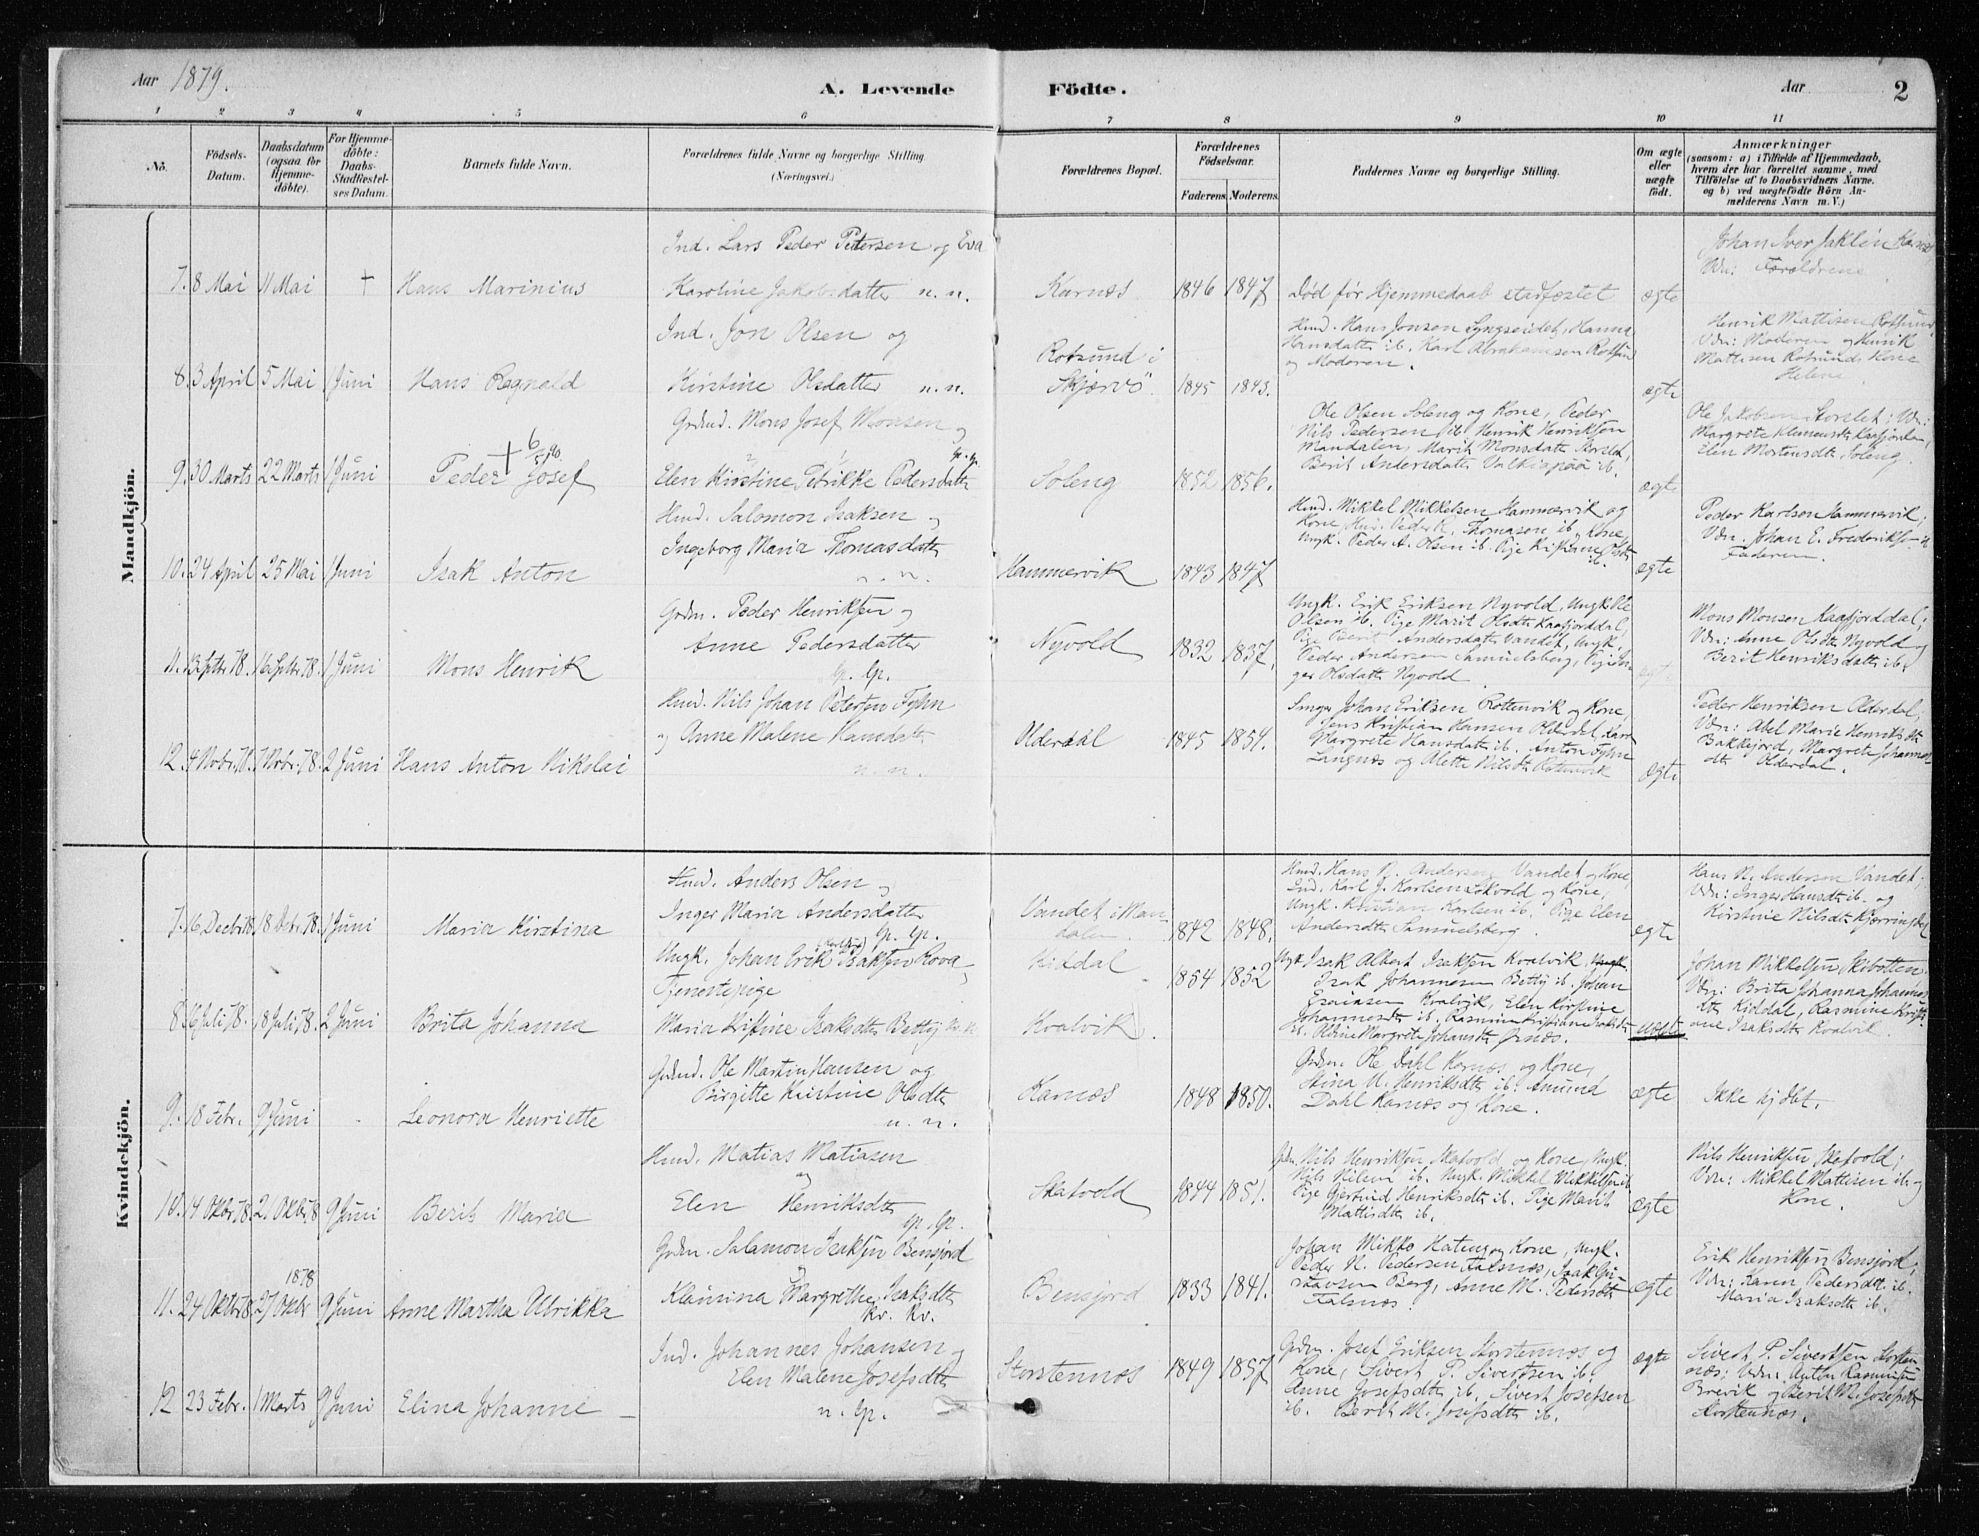 Aar 1879.
A. Levende Födte.
Aar
2
1 2 3 4 5 6 7 8 9 10 11
No.
Födsels-Datum.
Daabsdatum (ogsaa for Hjemme-döbte).
For Hjemme-döbte: Daabs-Stadfæstel-ses Datum.
Barnets fulde Navn.
Forældrenes fulde Navne og borgerlige Stilling. (Næringsvei.)
Forældrenes Bopæl.
Forældrenes Födselsaar.
Faderens. Moderens.
Faddernes Navne og borgerlige Stilling.
Om ægte eller uægte födt.
Anmærkninger
(saasom: a) i Tilfælde af Hjemmedaab,
hvem der har forrettet samme, med
Tilföielse af to Daabsvidners Navne,
og b) ved uægtefödte Börn An-
melderens Navn m. V.)
Mandkjön.
7. 8 Mai 11 Mai + Hans Marinius
Ind. Lars Peder Petersen og Eva
Karoline Jakobsdatter n. n.
Karnæs 1846 1847
Död för Hjemmedaab stadfæstet
ægte
Johan Iver Jaklin Karnæs
Vdn: Forældrene
8. 3 April 5 Mai 1 Juni Hans Regnald
Ind. Jon Olsen og
Kirstine Olsdatter n. n.
Rotsund i
Skjærvö 1845 1843.
Hmd. Hans Jonsen Lyngseidet, Hanna
Hansdatter ib. Karl Abrahamsen Rotsun
og Moderen.
ægte
Henrik Mattisen Rotsund.
Vdn: Moderen og Henrik
Mattisen Rotsunds Kone
Helene
9. 30 Marts 22 Marts 1 Juni Peder Josef
Grdmd. Mons Josef Monsen og
Elen Kirstine Petrikke Pedersdatter
Soleng 1852 1856.
Ole Olsen Soleng og Kone, Peder
Nils Pedersen ib. Henrik Henriksen
Mandalen, Marit Monsdatr Storslet,
Berit Andersdatr ib.
ægte
Ole Jakobsen Storslet; Vdn:
Margrete Klemensdtr Kaafjorden,
Elen Mortensdtr Soleng.
10. 24 April 25 Mai 1 Juni Isak Anton
Hmd. Salomon Isaksen og
Ingeborg Maria Thomasdatter
n. n.
Hammervik 1843 1847
Hmd. Mikkel Mikkelsen Hammervik og
Kone, Peder K. Thomasen ib. og Kone,
Ungk. Peder A. Olsen ib. Pige Kristiane Olsdtr
ib.
ægte
Peder Karlsen Hammervik;
Vdn. Johan E. Frederiksen og
Faderen.
11. 13 Septr 78. 16 Septr 78. 1 Juni Mons Henrik
Grdm. Peder Henriksen og
Anne Pedersdatter
lp. lp.
Nyvold 1832 1837.
Ungk. Erik Eriksen Nyvold, Ungk. Ole
Olsen ib. Pige Marit Olsdtr Kaafjorddal,
Pige Berit Andersdatr Vandet, Ungk.
Peder Andersen Samuelsberg, Pige In-
ger Olsdatr Nyvold
ægt.
Mons Monsen Kaafjorddal;
Vdn: Anne Olsdtr Nyvold og
Berit Henriksdatr ib.
12. 4 Novbr. 78. 7 Novbr. 78. 2 Juni Hans Anton Nikolai
Hmd. Nils Johan Petersen Fyhn
og Anne Malene Hansdatr
n. n.
Olderdal 1845 1854.
Johan Eriksen Rottenvik og Kone,
Jens Kristian Hansen Olderdal,
Margrete Hansdatr ib. Anton Fyhn
Langnæs og Mette Nilsdtr Rotenvik
ægte
Peder Henriksen Olderdal;
Vdn: Abel Marie Henriksdtr
Bakkejord, Margrete Johannes-
dtr Olderdal.
Kvindekjön.
7. 16 Decbr 78. 18 Decbr. 78. 1 Juni Maria Kirstina
Hmd. Anders Olsen og
Inger Maria Andersdatter
lp. lp.
Vandet i Man-
dalen. 1842 1848.
Hmd. Hans N. Andersen Vandet og Kone,
Ind. Karl J. Karlsen Skvold og Kone,
Ungk. Kristian Karlsen ib. Pige Elen
Andersdtr Samuelsberg.
ægte
Hans N. Andersen Vandet;
Vdn: Inger Hansdtr ib. og
Kirstine Nilsdtr Kjerringdal
8. 16 Juli 78. 18 Juli 78. 2 Juni Brita Johanna
Ungk. Johan Erik Isaksen Rova
Tjenestepige
Maria Kristine Isaksdtr Betty
Kiddal 1854 1852
Kvalvik.
Ungk Isak Albert Isaksen Kvalvik,
Isak Johannesen Betty ib. Johan
Esaiasen Kvalvik, Elen Kirstine
Johannesdtr ib. Rasmine Kristiane Isaksdtr
ib. Oldine Margrete Johansdtr Ornæs.
uægte
Johan Mikkelsen Skibotten
Vdn: Brita Johanna Johannes-
dtr Kiddal, Rasmine Kristi-
ane Isaksdtr Kvalvik.
9. 18 Febr. 9 Juni Leonora Henriette
Grdmd. Ole Martin Hansen og
Birgitte Kirstine Olsdtr
n. n.
Karnæs 1848 1850.
Grdm. Ole Dahl Karnæs og Kone,
Stina U. Henriksdtr ib. Amund
Dahl Karnæs og Kone.
ægte
Ikke hjdbt.
10. 14 Oktbr 78. 21 Oktbr. 78 9 Juni Berit Maria
Hmd. Matias Matiasen
og
Elen Henriksdtr
lp. lp.
Skatvold 1844 1851.
Grdm. Nils Henriksen Skatvold og Kone, Ungk.
Nils Nilsen ib. Ungk. Mikkel Mikkelsen ib.
Pige Gjertrud Henriksdtr ib. Pige Marit
Mattisdtr ib.
ægte
Nils Henriksen Skatvold;
Vdn: Mikkel Mattisen ib. og
Kone.
11. 24 Oktbr 78. 27 Oktbr 1878 9 Juni Anne Martha Ulrikka
Grdm. Salamon Isaksen Bensjord
og
Klemina Margrethe Isaksdtr
kv. kv.
Bensjord 1833 1841.
Johan Mikko Hateng og Kone, Ungk.
Peder N. Pedersen Falsnæs, Isak Gu-
stavsen Berg, Anne M. Pedersdtr
Falsnæs.
ægte
Erik Henriksen Bensjord;
Vdn: Karen Pedersdtr ib.
Maria Isaksdtr ib.
12 23 Febr. 1 Marts 9 Juni Elina Johanne
Ind. Johannes Johansen og
Elen Malene Josefsdtr
n. lp.
Storstennæs 1849 1857
Grdm. Josef Eriksen Storstennæs og
Kone, Sivert P. Sivertsen ib.
Anne Josefsdtr ib. Sivert Josefsen
ib. Berit M. Josefsdtr ib.
ægte
Sivert P. Sivertsen Storsten-
næs; Vdn: Anton Rasmussen
Brevik og Berit M. Josefsdtr
Storstennæs.